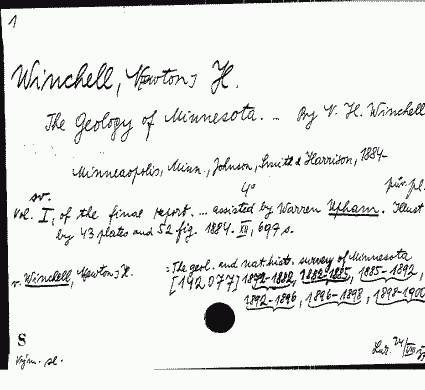 1
Winchell, Newton] H.
The Geology of Minnesota. — By N. H. Winchell
Minneapolis, Minn., Johnson, Smith & Harrison, 1884-
4°
sv.
Vol. I, of the final report. ... assisted by Warren Upham. Illust
by 43 plates and 52 fig. 1884. XII, 697 s.
v. Winchell, Newton H. = The geol. and nat. hist. survey of Minnesota
[192,077] 1872-1882, 1882-1885, 1885-1892,
1892-1896, 1896-1898, 1898-1900
S